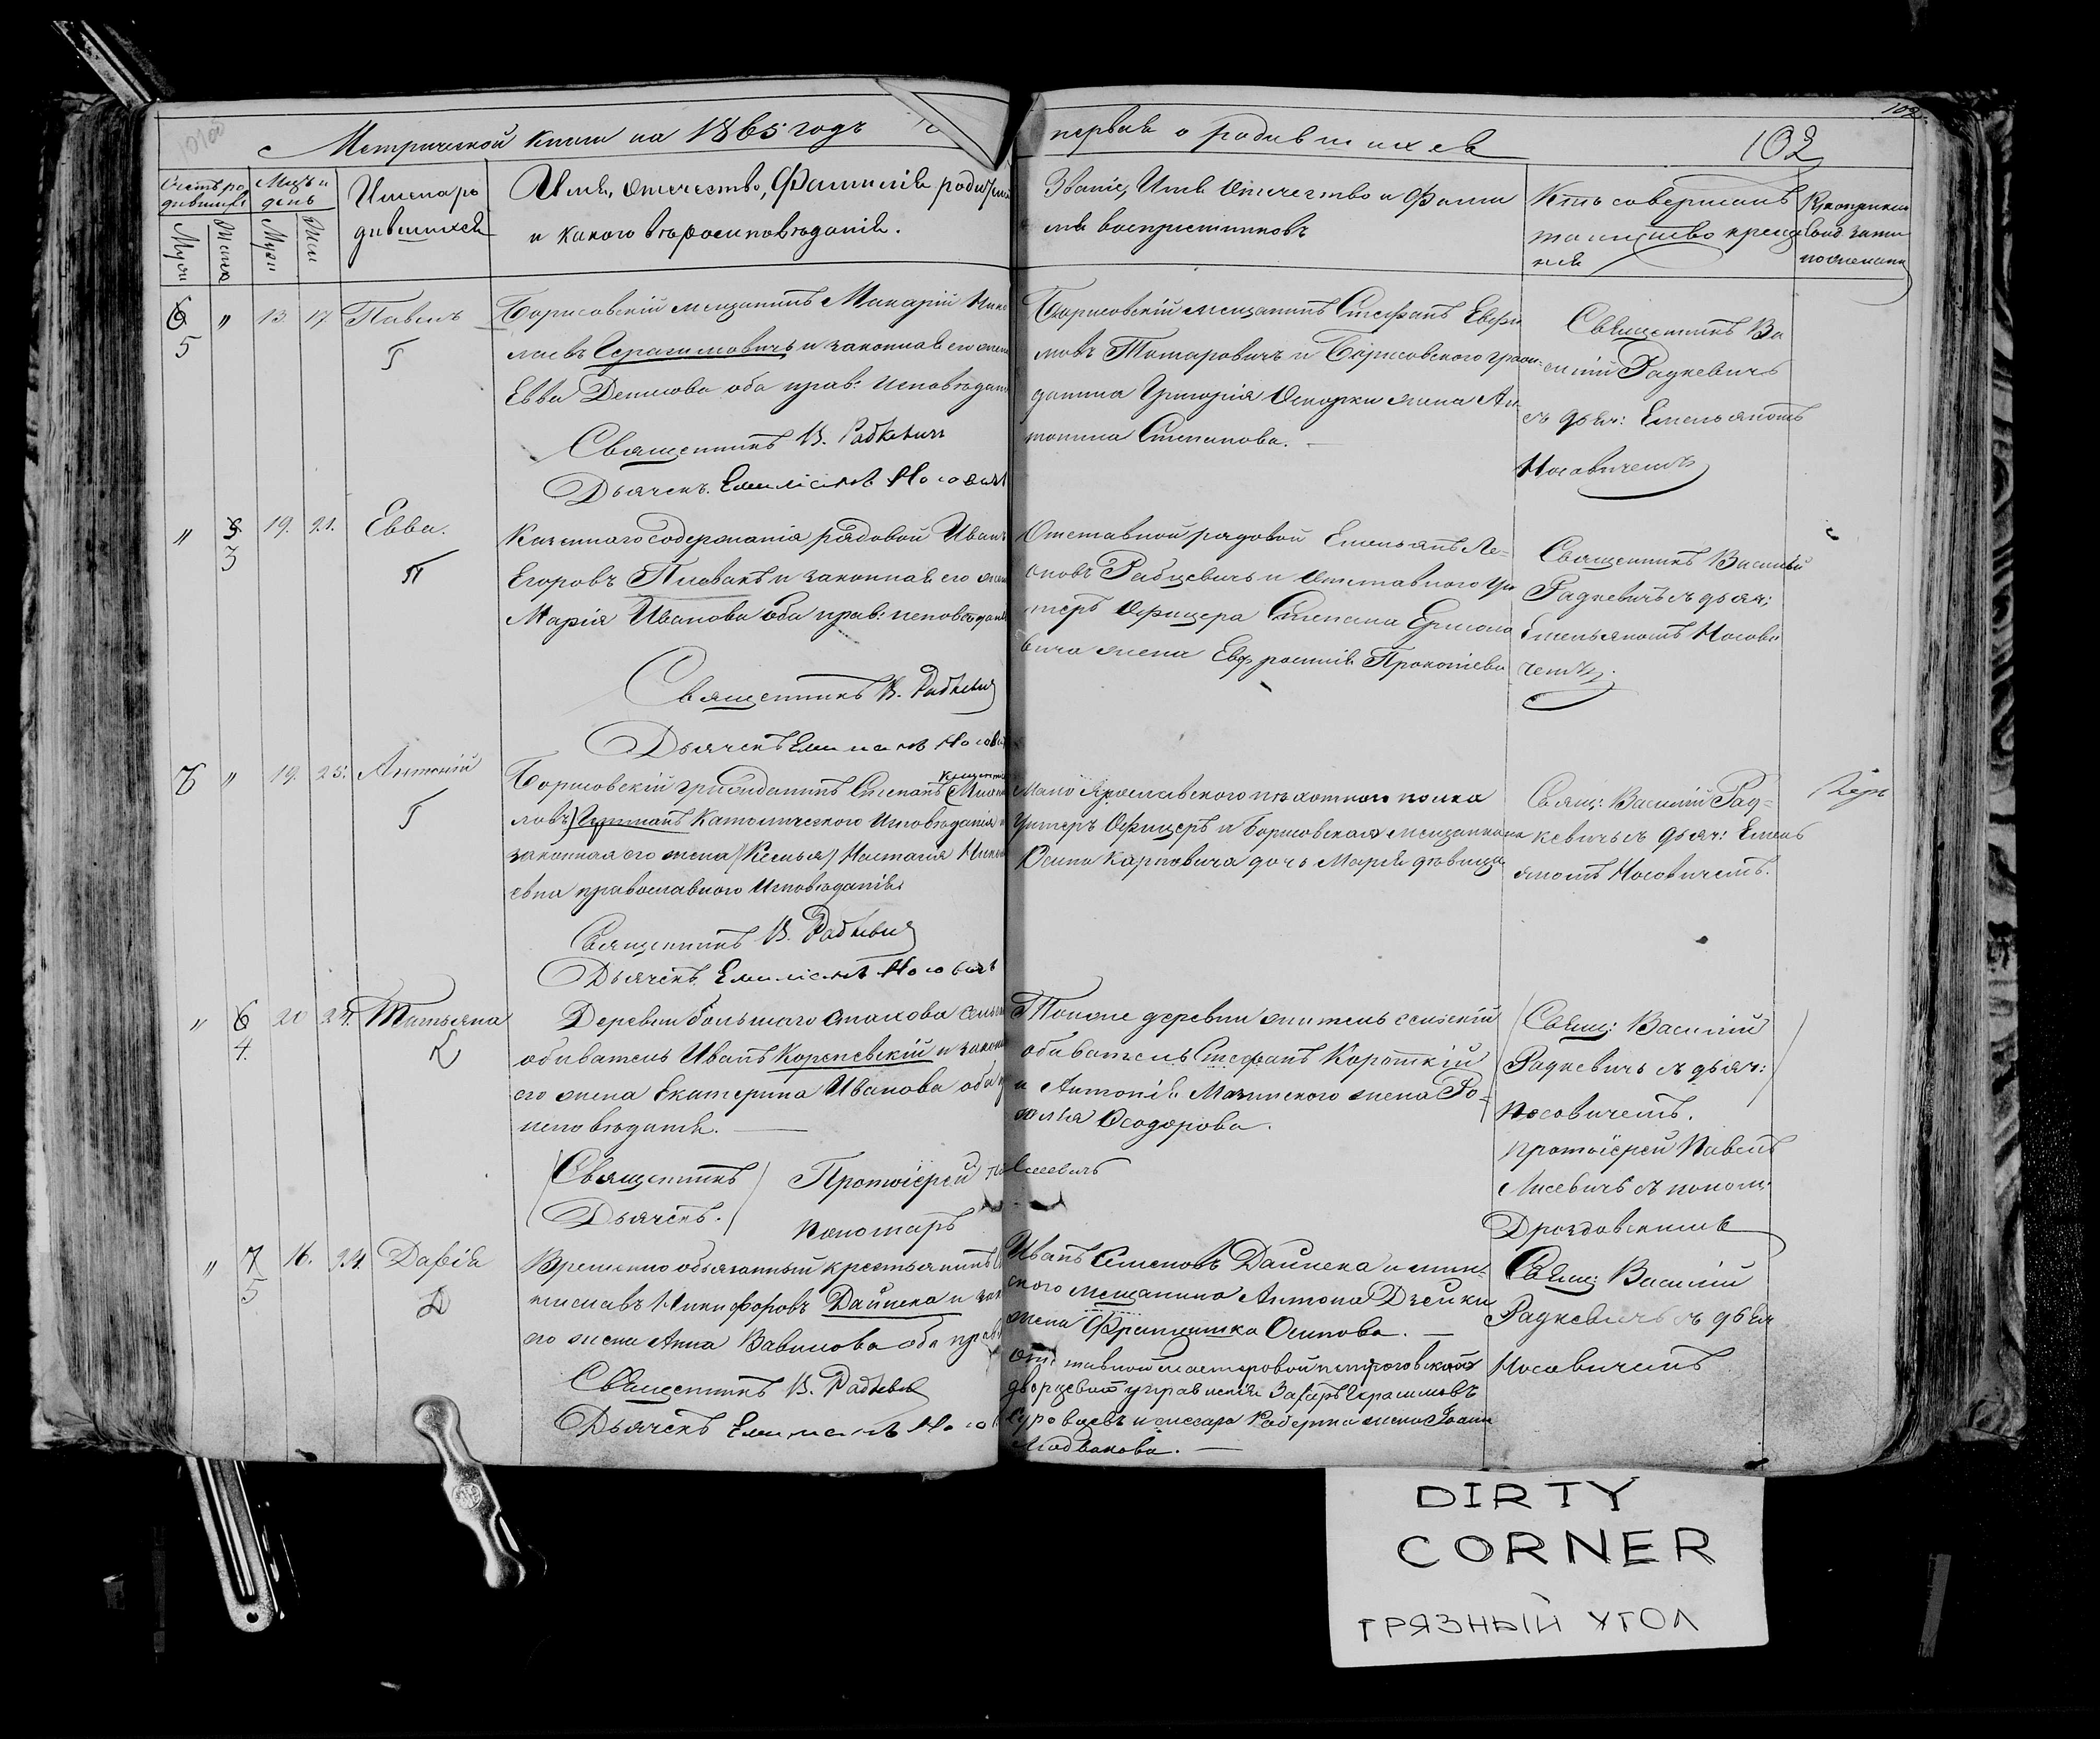 Метрической книги на 1865 годъ
первая о родившихся
102
Счетъ родившихся
Мѣсяцъ и день
Имена родившихся
Имя, отечество, Фамилія родителей
и какого вѣроисповѣданія.
Званіе, Имя Отечество и Фами
лія воспріемниковъ
Кто совершалъ
таинство креще
нія
5
"
13.
17
Павелъ
Г
Борисовскій мещанинъ Макарій Нико
лаевъ Герасимовичъ и законная его жена
Евва Денисова оба прав: исповѣдан
Священникъ В. Радкевич
Дьячекъ Емиліанъ Носович
Борисовскій мещанинъ Стефанъ Евфи
мовъ Татаровичъ и Борисовского граж
данина Григорія Оскирки жена Ан
тонина Степанова.
Священникъ Ва
силій Радкевичъ
съ дьяч: Емельяномъ
Носовичемъ
"
3
19.
21.
Евва.
П
Казеннаго содержанія рядовой Иванъ
Егоровъ Писванъ и законная его жена
Марія Иванова оба прав: исповѣдан
Священникъ В. Радкевич
Дьячекъ Емиліанъ Носович
Отставной рядовой Емельянъ Ле-
оновъ Рабцевичъ и Отставного Ун
теръ Офицера Степана Ермоло
вича жена Евфросинія Прокопіева
Священникъ Василій
Радкевичъ съ дьяч:
Емельяномъ Носови
чемъ.
6
"
19.
25.
Антоній
Г
Борисовскій гражданинъ Степанъ
Католического Исповѣданія и
законная его жена (Ксенья) Настасія
евна православного Исповѣданія
Священникъ В. Радкевич
Дьячекъ Емиліанъ Носович
Мало Ярославского пѣхотного полка
Унтеръ Офицеръ и Борисовская мещанкана
Осипа Карповича дочь Марія дѣвица
Свящ: Василій Рад-
кевичъ съ дьяч: Емель
яномъ Носовичемъ.
"
4.
20
24.
Татьяна
К
Деревни большаго Стахова сельскій
обыватель Иванъ Кореневскій и законная
его жена Екатерина Иванова оба п
исповѣданія.
(Священникъ) Протоіерей
Дьячекъ.) Пономарь
Тойже деревни житель сельскій
обыватель Стефанъ Короткій
и Антонія Мазинского жена Ро-
залія Ѳеодорова.
Лисевичъ
(Свящ: Василій
Радкевичъ съ дьяч:
Носовичемъ.
Протоіерей Павелъ
Лисевичъ съ поном:
Дроздовскимъ
"
7
5
16.
24.
Дарія
Д
Временно обязанный крестьянинъ
Никифоровъ Дайнека и зак
его жена Анна Вавилова оба прав
Священникъ В. Радкевич
Дьячекъ Емиліанъ Носо
Иванъ Семеновъ Дайнека и мин-
ского мещанина Антона Дзейки
жена Францишка Осипова.
Отставной мастеровой петроговской
дворцовой управленія Захаръ Герасимовъ
Суровцевъ и Роберта жена Іоанна
Свящ: Василій
Радкевичъ съ дьяч
Носовичемъ
DIRTY
CORNER
ГРЯЗНЫЙ УГОЛ